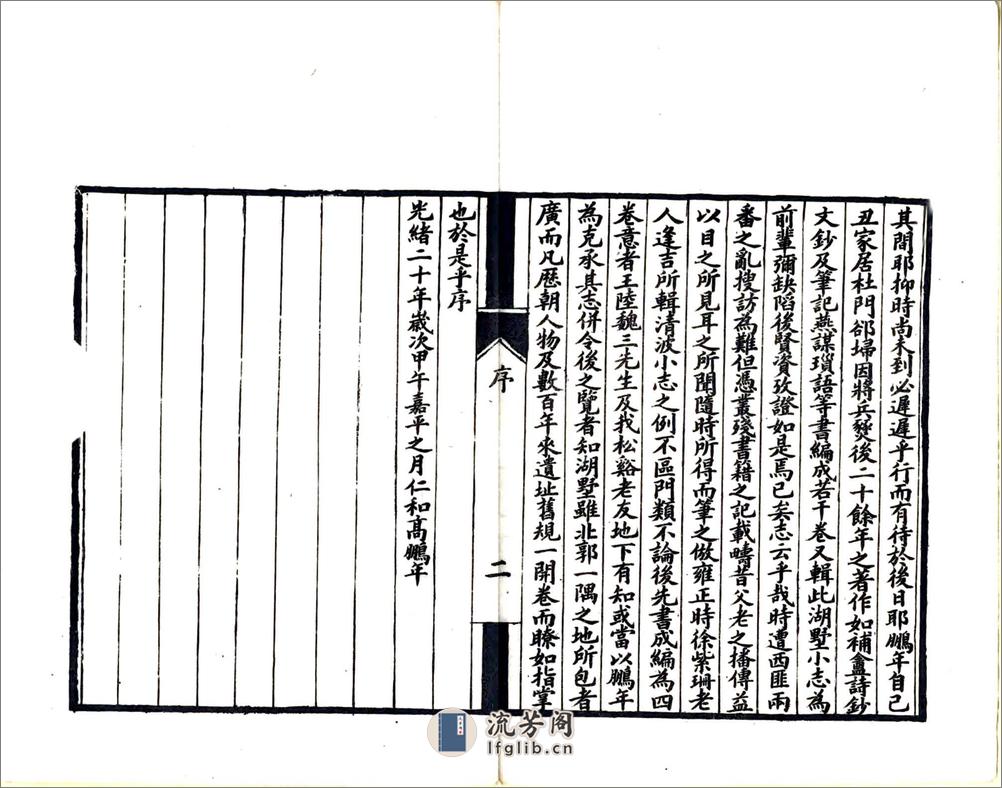 其間耶抑時尚未到必遲遲乎行而有待於後日耶鵬年自己
丑家居杜門郤埽因將兵燹後二十餘年之著作如補盦詩鈔
文鈔及筆記燕謀瑣語等書編成若干卷又輯此湖墅小志為
前輩彌缺陷後賢資攷證如是焉已矣志云乎哉時遭西匪兩
番之亂搜訪為難但憑叢殘書籍之記載疇昔父老之播傳益
以目之所見耳之所聞隨時所得而筆之倣雍正時徐紫珊老
人逢吉所輯清波小志之例不區門類不論後先書成編為四
卷意者王陸魏三先生及我松谿老友地下有知或當以鵬年
為克承其志併令後之覽者知湖墅雖北郭一隅之地所包者
廣而凡歷朝人物及數百年來遺址舊規一開卷而瞭如指掌
序
二
也於是乎序
光緒二十年歲次甲午嘉平之月仁和高鵬年
流芳阁
lfglib.cn